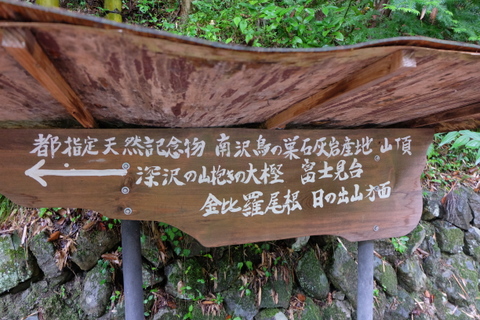 都指定天然記念物 南沢鳥の巣石灰岩産地 山頂
深沢の山抱きの大樫 富士見台
金比羅尾根 日の出山方面